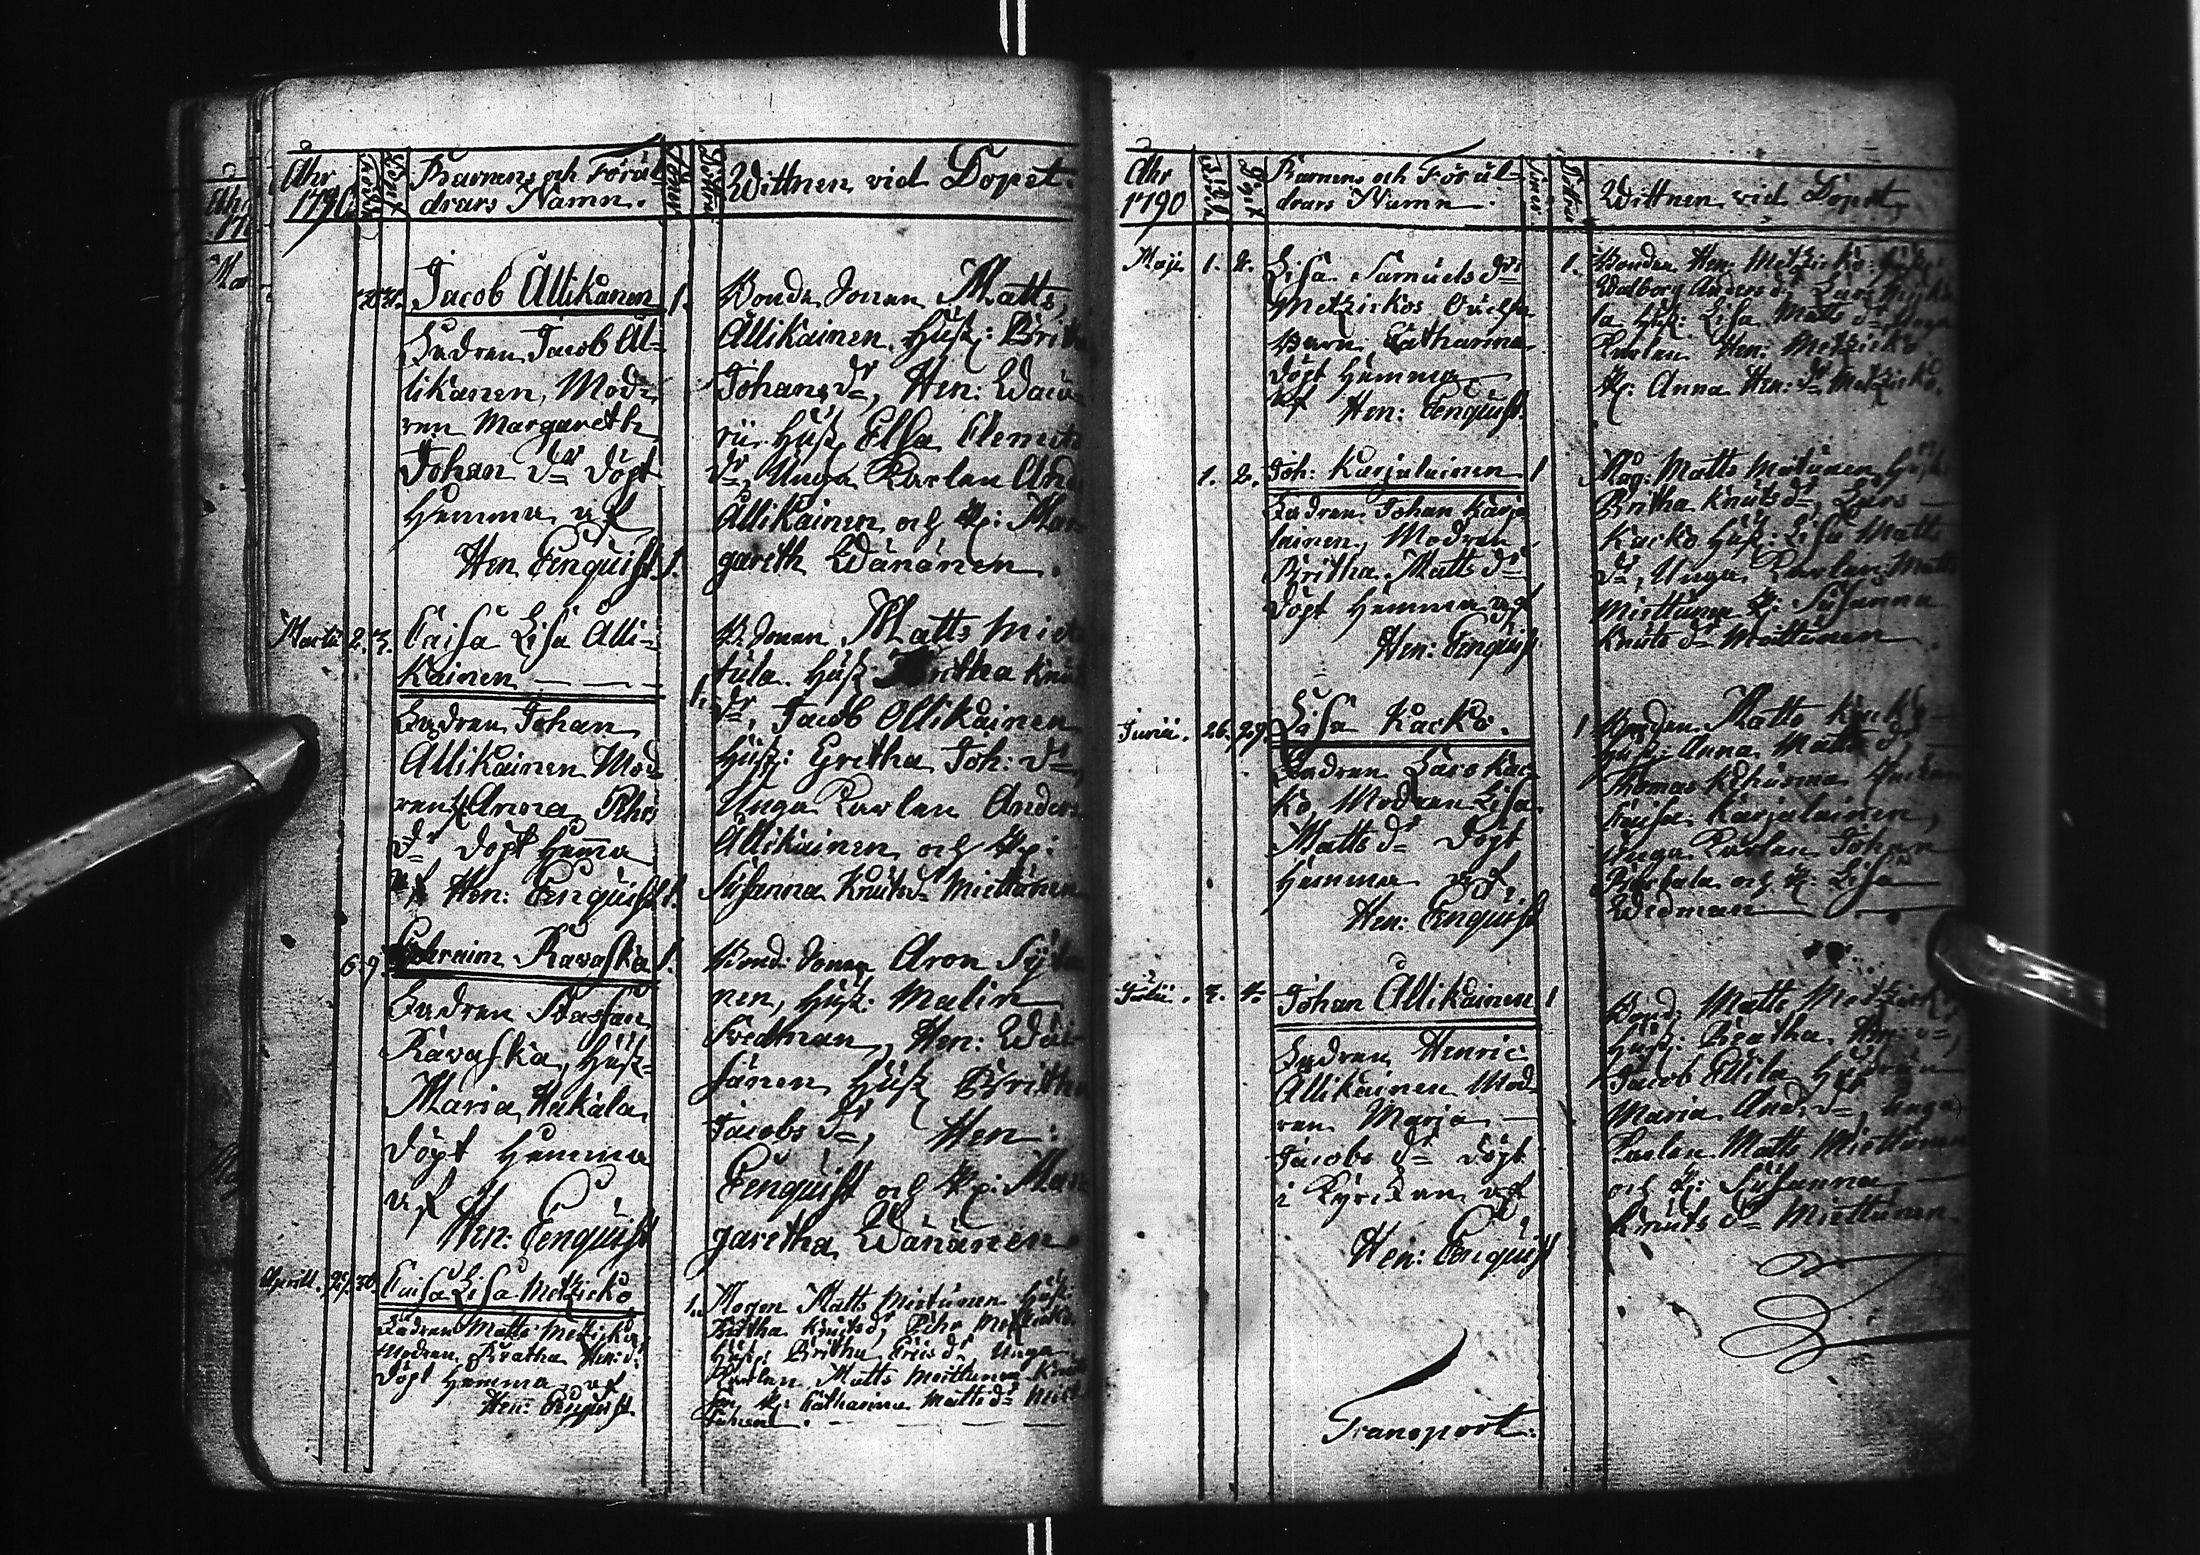 Åhr
1790
Födde
Döpt
Barnens och Föräl-
drars Namn.
Söner
Döttrar
Wittnen vid Dopet.
Jacob Allikanen 1.
Fadren Jacob Al-
likanen, Mod-
ren Margareth
Johan dr döpt
Hemma af
Hen Enquist 1.
Bonde Sonen Matts
Allikainen Hust: Brit
Johans dr, Hen:
Hust. Ella Clemets
dr, Unga Karlen And
Allikainen och P: Mar
gareth Wänänen.
Martii 2. 3. Caisa Lisa Alli-
kainen
Fadren Johan
Allikainen Mod
ren Anna Tho
dr döpt Hema
af Hen: Enquist 1.
1.
B. Sonen Matts Miet
tula Hust Britha Knut
dr, Jacob Ollikainen
Hust: Gretha Joh: dr
Unga Karlen Anders
Allikainen och P:
Susanna Knuts dr Miettunen
6 9 Ephraim Ravaska 1.
Fadren Staffan
Ravaska, Hust-
Maria Hakala
döpt Hemma
af
Hen: Enquist
Bond: Sonen Aron
nen, Hust: Malin
Fredman, Hen: Wäi
sänen Hust Britha
Jacobs dr, Hen:
Enquist och P: Mar
garetha Wänänen
Aprill. 29. 30. Caisa Lisa Metzicko
Fadren Matts Metzicko
Modren Beatha Hen: d:
döpt Hemma af
Hen: Enquist
1. Magen Matts Mietunen Hust:
Britha Knuts dr, Pehr Metzicko
Hust: Britha Erics dr Unga
Karlen Matts Miettunen Knut
son P: Catharina Matts dr Miet
tunen
Åhr
1790
Födde
Döpt
Barnens och Föräl-
drars Namn.
Söner
Döttrar
Wittnen vid Dopet
Maji 1. 2. Lisa Samuels dr
Metzickos
Barn Catharina
döpt Hemma
af Hen: Enquist
1. Bonden Hen: Metzicko
Walborg Anders dr, Lars
sa Hust: Lisa Matts dr Unga
Karlen Hen: Metzicko
P: Anna Hen: dr Metzicko.
1. 2. Joh: Karjalainen 1
Fadren Johan Karja
lainen, Modren
Britha Matts dr
döpt Hemma af
Hen: Enquist
Mag: Matts Mietunen Hust:
Britha Knuts dr, Lars
Kacko Hust: Lisa Matts
dr, Unga Karlen Matts
Miettunen P: Susanna
Knuts dr Miettunen
Junii. 26. 29. Lisa Kacko.
Fadren Lars Kac
ko Modren Lisa
Matts dr döpt
Hemma af
Hen: Enquist
1 Borgen Matts Kacko
Hust: Anna Matts dr
Thomas
Caisa Karjalainen,
Unga Karlen Johan
och P: Lisa
Wedman
Julii. 3. 4. Johan Allikainen 1
Fadren Henric
Allikainen Mod-
ren Marja
Jacobs dr döpt
i Kyrckan af
Hen: Enquist
Bond: Matts Metzicko
Hust: Beatha Hen: dr,
Jacob Hustrun
Maria And: dr, Unga
Karlen Matts Miettunen
och P: Susanna
Knuts dr Miettunen.
Transport: